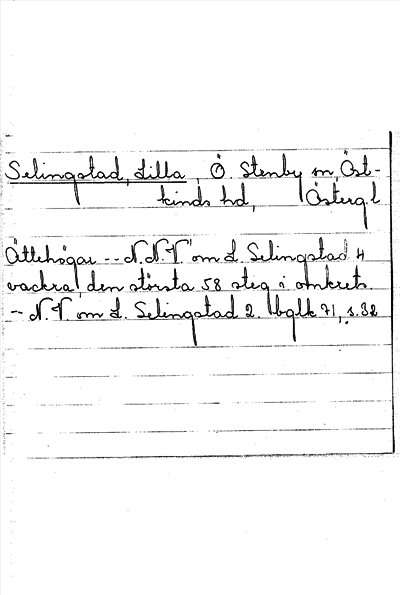 Selingstad, Lilla, Ö. Stenby sn, Öst-
kinds hd, Östergl
Ättehögar -- N.N.V. om L. Selingstad 4
vackra, den största 58 steg i omkrets.
- N.V. om L. Selingstad 2. bglk 71, s.32